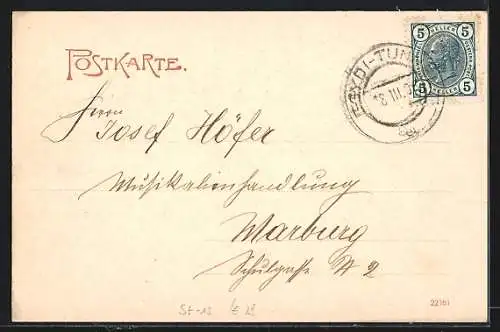 POSTKARTE.
5 HELLER 5
5 HELLER 5
18 III
Herrn
Josef Höfer
Musikalienhandlung
Warburg
Schulgasse № 2
22161